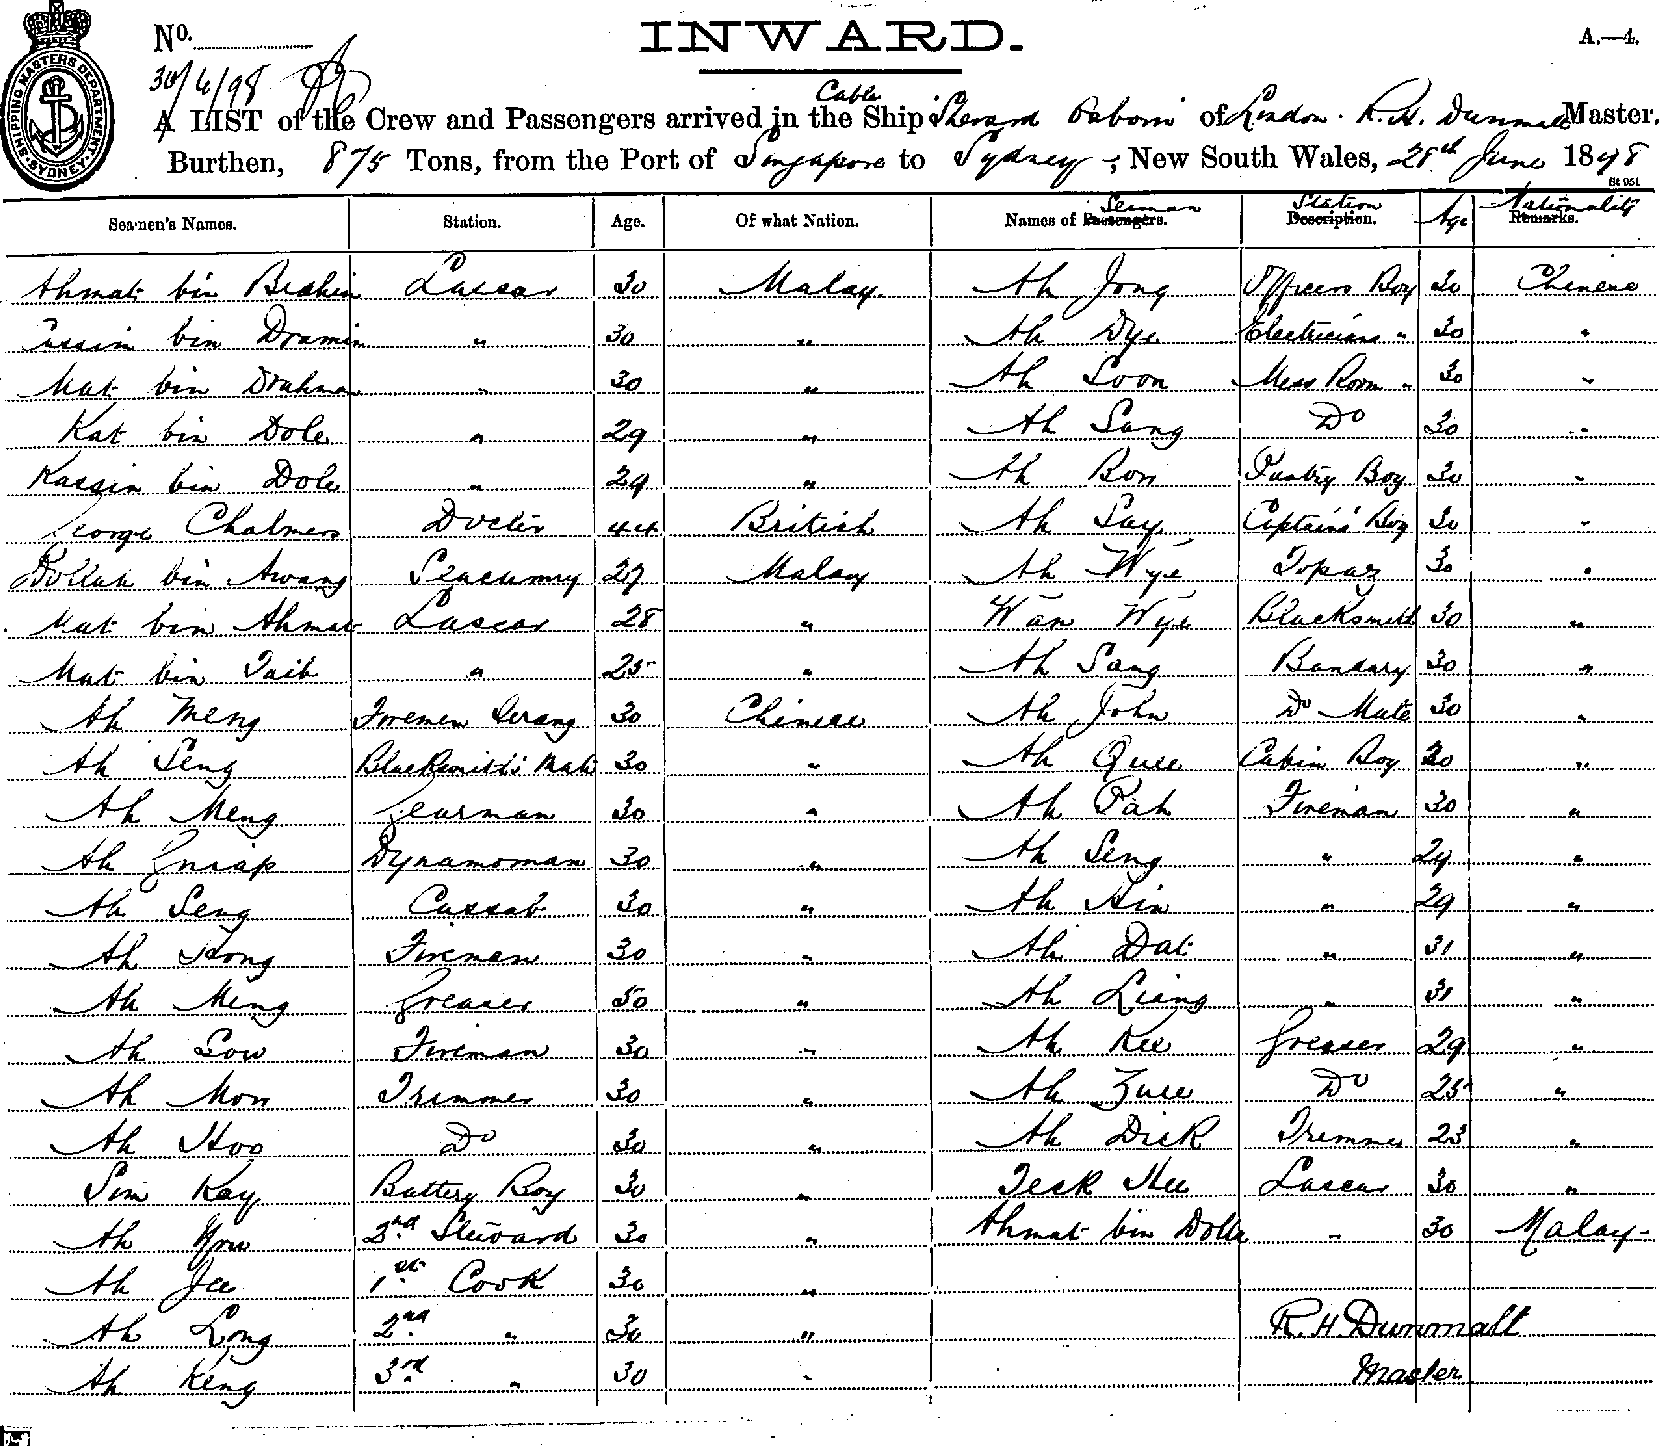 SHIPPING MASTERS DEPARTMENT SYDNEY
No.
INWARD.
A.—4.
30/6/98
Cable
A LIST of the Crew and Passengers arrived in the Ship Sherard Osborn of London. R. H. Dunmall Master.
Burthen, 875 Tons, from the Port of Singapore to Sydney, New South Wales, 28th June 1898
St 951
Seaman Station Nationality
Seamen's Names. Station. Age. Of what Nation. Names of Passengers. Description. Age Remarks.
Ahmat bin Brahim Lascar 30 Malay. Ah Jong Officers Boy 30 Chinese
Cassim bin Dramin " 30 " Ah Dye Electricians " 30 "
Mat bin Drahman " 30 " Ah Soon Mess Room " 30 "
Kat bin Dole " 29 " Ah Sang Do 30 "
Kassin bin Dole " 29 " Ah Bon Pantry Boy 30 "
George Chalmers Doctor 44 British Ah Say Captains' Boy 30 "
Dollah bin Awang Seacunny 27 Malay Ah Wye Topaz 30 "
Mat bin Ahmat Lascar 28 " Wan Wye Blacksmith 30 "
Mat bin Taib " 25 " Ah Sang Bandary 30 "
Ah Meng Firemen Serang 30 Chinese Ah John Do Mate 30 "
Ah Seng Blacksmith's Mate 30 " Ah Quee Cabin Boy 30 "
Ah Meng Gearman 30 " Ah Pah Fireman 30 "
Ah Gniap Dynamoman 30 " Ah Seng " 29 "
Ah Seng Cassab 30 " Ah Hin " 29 "
Ah Kong Fireman 30 " Ah Dat " 31 "
Ah Meng Greaser 30 " Ah Liang " 31 "
Ah Sow Fireman 30 " Ah Kee Greaser 29 "
Ah Mon Trimmer 30 " Ah Zuee Do 25 "
Ah Hoo Do 30 " Ah Dick Trimmer 23 "
Sim Kay Battery Boy 30 " Teck Hee Lascar 30 "
Ah You 2nd Steward 30 " Ahmat bin Dolla " 30 Malay
Ah Jee 1st Cook 30 "
Ah Long 2nd " 30 " R. H Dunmall
Ah Keng 3rd " 30 " Master